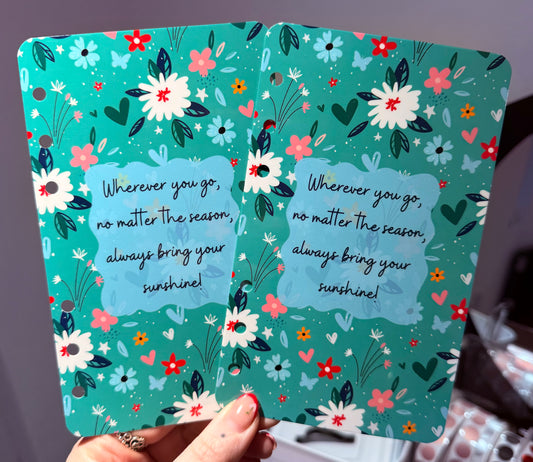 Wherever you go,
no matter the season,
always bring your
sunshine!
Wherever you go,
no matter the season,
always bring your
sunshine!